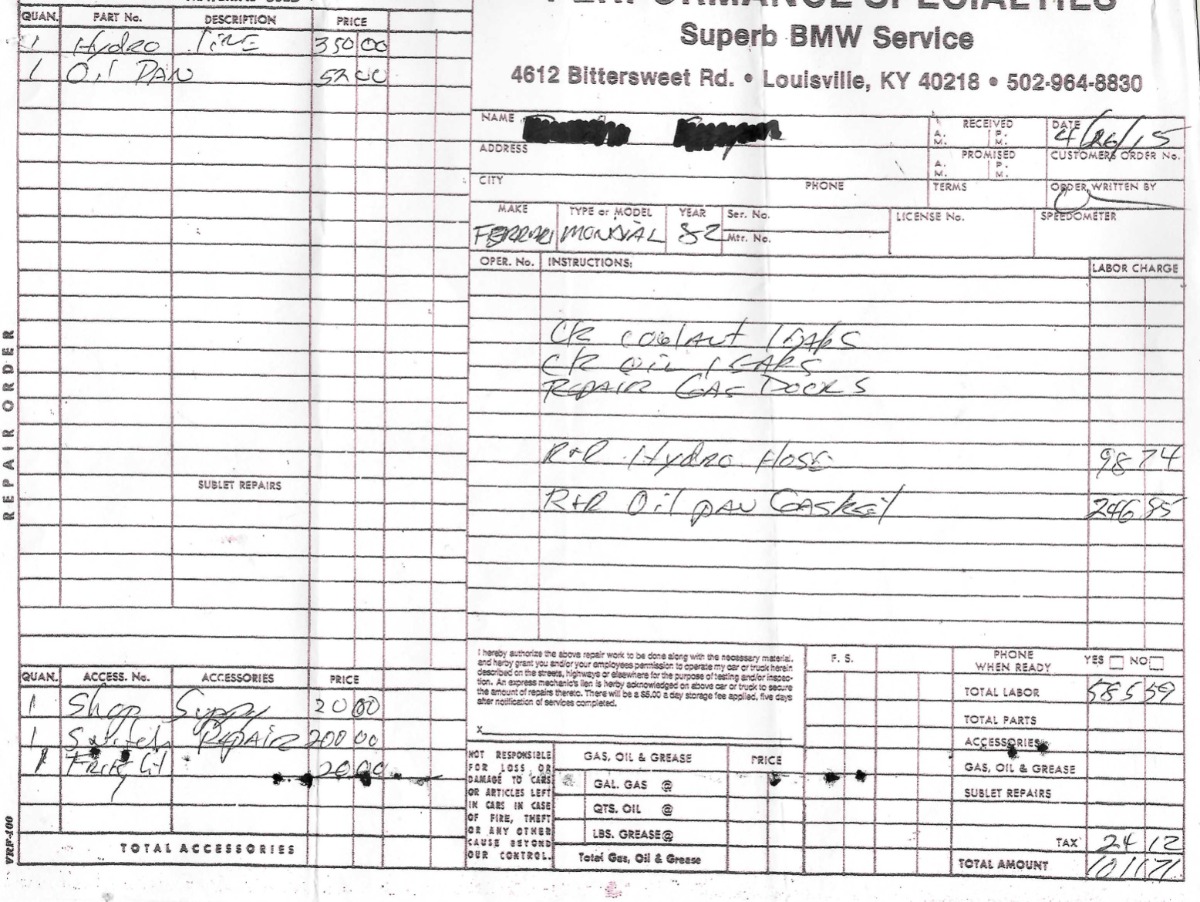 PERFORMANCE SPECIALTIES
Superb BMW Service
4612 Bittersweet Rd. • Louisville, KY 40218 • 502-964-8830
QUAN. PART No. DESCRIPTION PRICE
1 Hydro Line 350 00
1 Oil Pan 52 00
SUBLET REPAIRS
REPAIR ORDER
QUAN. ACCESS. No. ACCESSORIES PRICE
1 Shop Suppy 20 00
1 Switch Repair 200 00
20 00
TOTAL ACCESSORIES
VRF-400
NAME
RECEIVED A. M. P. M.
DATE 4/26/15
ADDRESS
PROMISED A. M. P. M.
CUSTOMERS ORDER No.
CITY PHONE TERMS ORDER WRITTEN BY
MAKE TYPE or MODEL YEAR Ser. No. LICENSE No. SPEEDOMETER
FERRARI MONDIAL 82 Mtr. No.
OPER. No. INSTRUCTIONS: LABOR CHARGE
CK COOLANT LEAKS
CK OIL LEAKS
REPAIR GAS DOORS
R+R Hydro Hose 98 74
R+R Oil pan Gasket 246 85
I hereby authorize the above repair work to be done along with the necessary material,
and herby grant you and/or your employees permission to operate my car or truck herein
described on the streets, highways or elsewhere for the purpose of testing and/or inspec-
tion. An express mechanic's lien is herby acknowledged on above car or truck to secure
the amount of repairs thereto. There will be a $5.00 a day storage fee applied, five days
after notification of services completed.
X
F. S.
PHONE WHEN READY YES NO
TOTAL LABOR 585 59
TOTAL PARTS
ACCESSORIES
GAS, OIL & GREASE
SUBLET REPAIRS
TAX 24 12
TOTAL AMOUNT 1011 71
NOT RESPONSIBLE
FOR LOSS OR
DAMAGE TO CARS
OR ARTICLES LEFT
IN CARS IN CASE
OF FIRE, THEFT
OR ANY OTHER
CAUSE BEYOND
OUR CONTROL.
GAS, OIL & GREASE PRICE
GAL. GAS @
QTS. OIL @
LBS. GREASE @
Total Gas, Oil & Grease